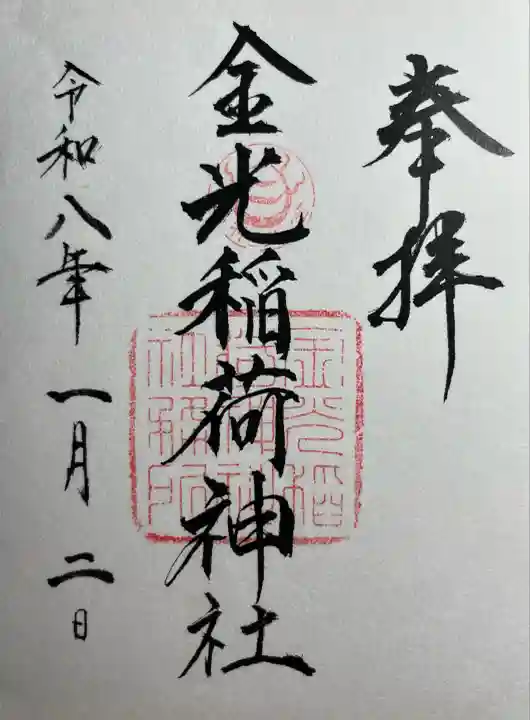 奉拝
金光稲荷神社
金光稲
荷神社
社務所
令和八年一月二日